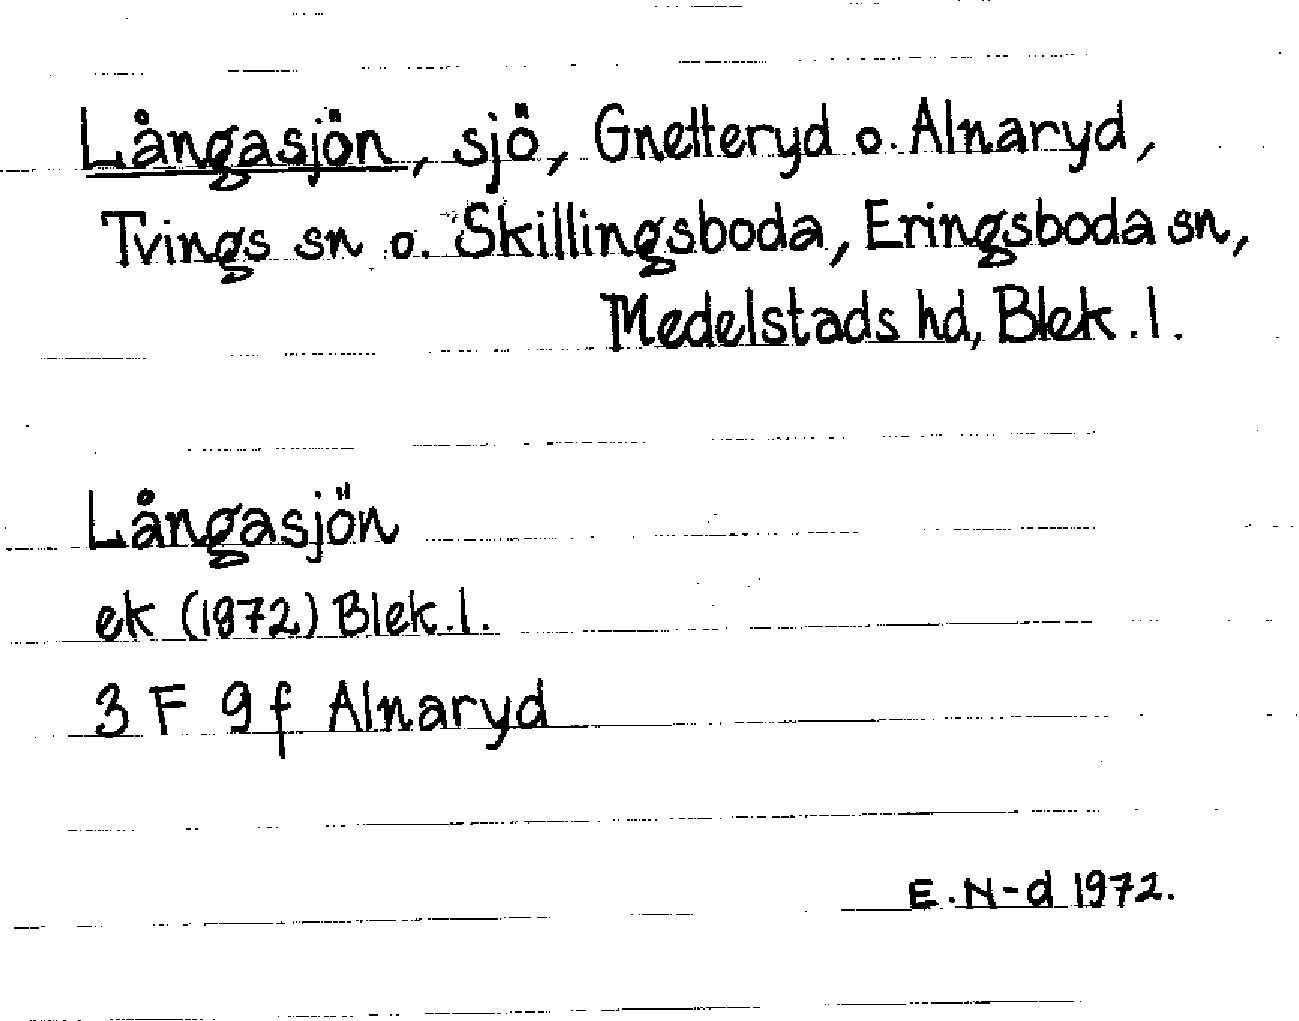 Långasjön, sjö, Gnetteryd o. Alnaryd,
Tvings sn o. Skillingsboda, Eringsboda sn,
Medelstads hd, Blek. l.
Långasjön
ek (1972) Blek. l.
3 F 9f Alnaryd
E. N-d 1972.